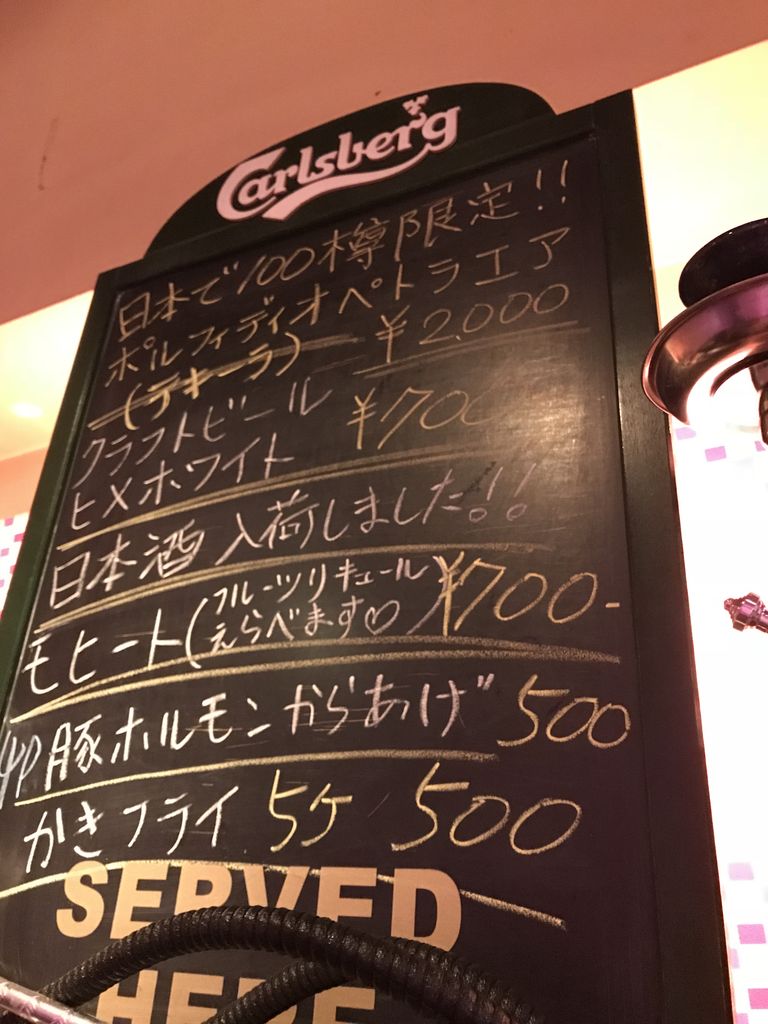 Carlsberg
日本で100樽限定!!
ポルフィディオペトラエア
(テキーラ) ¥2,000
クラフトビール ¥700
ヒメホワイト
日本酒入荷しました!!
モヒート(フルーツリキュール
えらべます♡ ¥700-
豚ホルモンからあげ 500
かきフライ 5ケ 500
SERVED
HERE